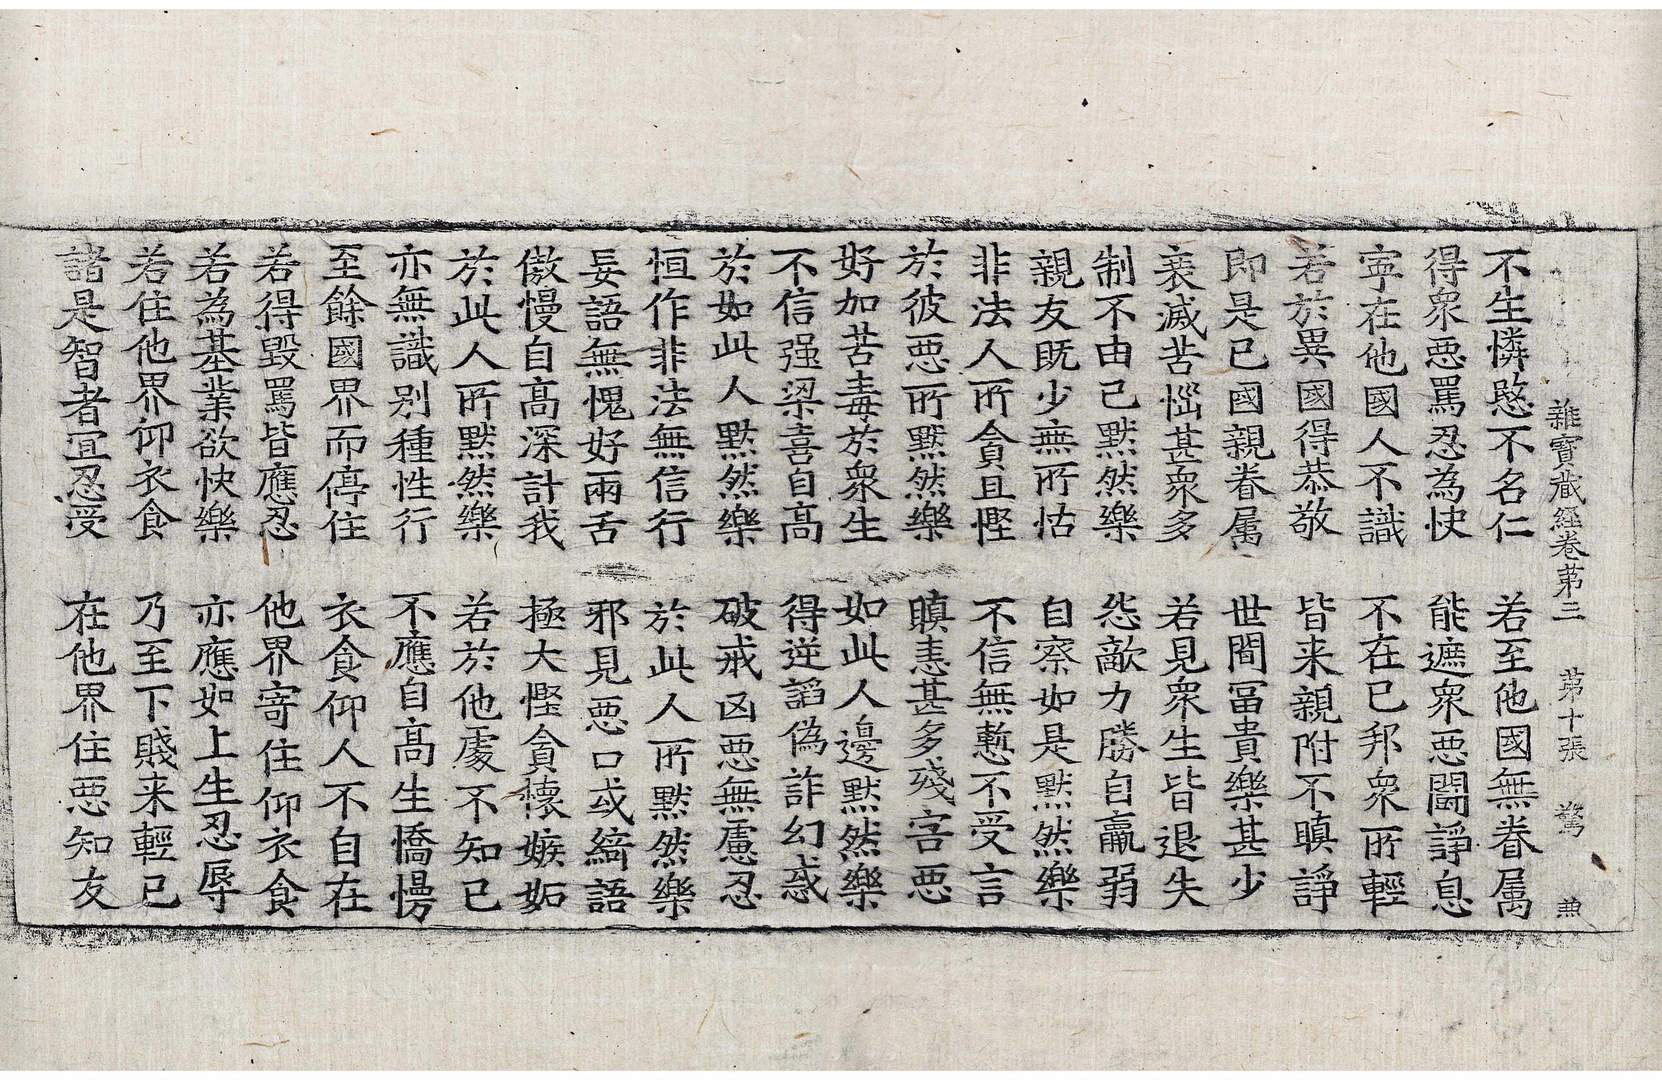 雜寶藏經卷第三 第十張 驚
不生憐愍不名仁 若至他國無眷属
得衆惡罵忍為快 能遮衆惡鬪諍息
寕在他國人不識 不在己邦衆所輕
若於異國得恭敬 皆来親附不瞋諍
即是己國親眷属 世間冨貴樂甚少
衰滅苦惱甚衆多 若見衆生皆退失
制不由己默然樂 怨敵力勝自羸弱
親友既少無所怙 自察如是默然樂
非法人所貪且慳 不信無慙不受言
於彼惡所默然樂 瞋恚甚多殘害惡
好加苦毒於衆生 如此人邊默然樂
不信强梁喜自高 得逆諂偽詐幻惑
於如此人默然樂 破戒凶惡無慮忍
恒作非法無信行 於此人所默然樂
妄語無愧好兩舌 邪見惡口或綺語
傲慢自高深計我 極大慳貪懷嫉妬
於此人所默然樂 若於他處不知己
亦無識别種性行 不應自高生憍慢
至餘國界而停住 衣食仰人不自在
若得毀罵皆應忍 他界寄住仰衣食
若為基業欲快樂 亦應如上生忍辱
若住他界仰衣食 乃至下賤来輕己
諸是智者宜忍受 在他界住惡知友